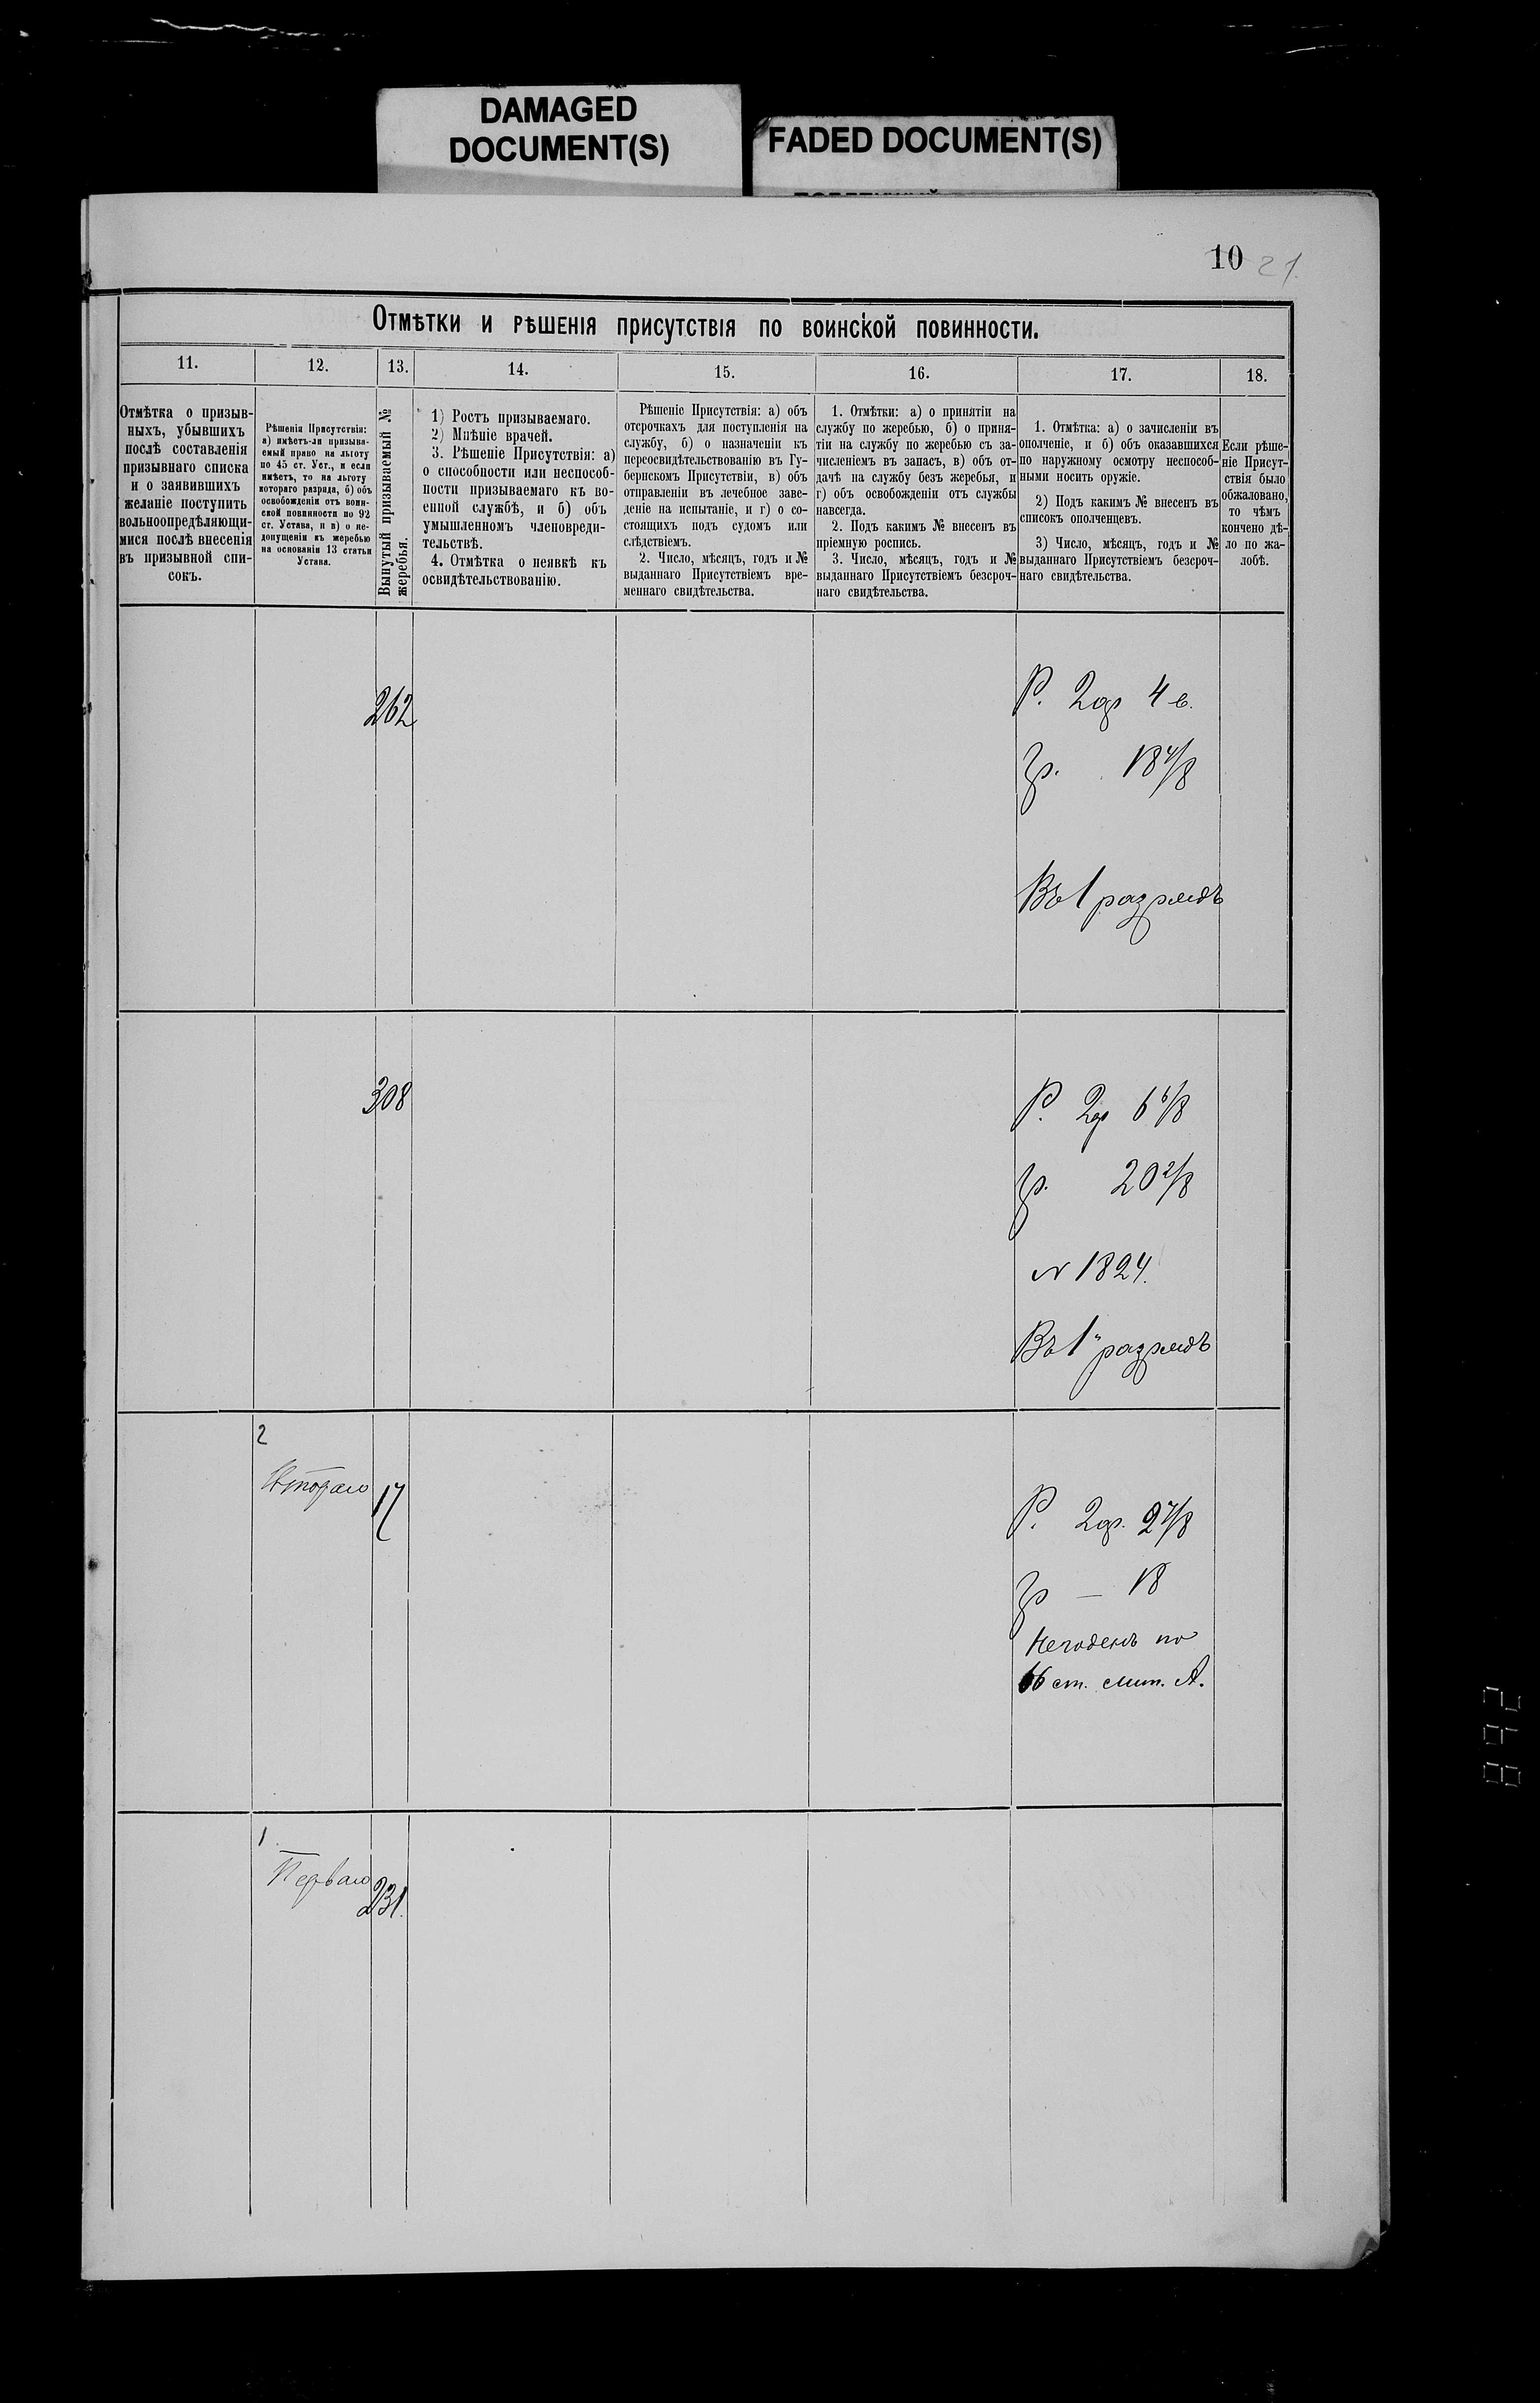 DAMAGED
DOCUMENT(S)
FADED DOCUMENT(S)
10 21.
Отмѣтки и рѣшенія присутствія по воинской повинности.
11.
12.
13.
14.
15.
16.
17.
18.
Отмѣтка о призыв-
ныхъ, убывшихъ
послѣ составленія
призывнаго списка
и о заявившихъ
желаніе поступить
вольноопредѣляющи-
мися послѣ внесенія
въ призывной спи-
сокъ.
Рѣшенія Присутствія:
а) имѣетъ-ли призыва-
емый право на льготу
по 45 ст. Уст., и если
имѣетъ, то на льготу
котораго разряда, б) объ
освобожденіи отъ воин-
ской повинности по 92
ст. Устава, и в) о не-
допущеніи къ жеребью
на основаніи 13 статьи
Устава.
Вынутый призываемый №
жеребья.
1) Ростъ призываемаго.
2) Мнѣніе врачей.
3. Рѣшеніе Присутствія: а)
о способности или неспособ-
ности призываемаго къ во-
енной службѣ, и б) объ
умышленномъ членовреди-
тельствѣ.
4. Отмѣтка о неявкѣ къ
освидѣтельствованію.
Рѣшеніе Присутствія: а) объ
отсрочкахъ для поступленія на
службу, б) о назначеніи къ
переосвидѣтельствованію въ Гу-
бернскомъ Присутствіи, в) объ
отправленіи въ лечебное заве-
деніе на испытаніе, и г) о со-
стоящихъ подъ судомъ или
слѣдствіемъ.
2. Число, мѣсяцъ, годъ и №
выданнаго Присутствіемъ вре-
меннаго свидѣтельства.
1. Отмѣтки: а) о принятіи на
службу по жеребью, б) о приня-
тіи на службу по жеребью съ за-
численіемъ въ запасъ, в) объ от-
дачѣ на службу безъ жеребья, и
г) объ освобожденіи отъ службы
навсегда.
2. Подъ какимъ № внесенъ въ
пріемную роспись.
3. Число, мѣсяцъ, годъ и №
выданнаго Присутствіемъ безсроч-
наго свидѣтельства.
1. Отмѣтка: а) о зачисленіи въ
ополченіе, и б) объ оказавшихся
по наружному осмотру неспособ-
ными носить оружіе.
2) Подъ какимъ № внесенъ въ
списокъ ополченцевъ.
3) Число, мѣсяцъ, годъ и №
выданнаго Присутствіемъ безсроч-
наго свидѣтельства.
Если рѣше-
ніе Присут-
ствія было
обжаловано,
то чѣмъ
кончено дѣ-
ло по жа-
лобѣ.
262
Р. 2ар 4 в.
гр. 18 4/8
Въ 1 разрядъ
308
Р. 2ар 6 6/8
гр. 20 2/8
N 1824.
Въ 1й разрядъ
2
Втораго
17
Р. 2ар. 2 7/8
гр — 18
Негоденъ по
66 ст. лит. А.
1
Перваго
231.
842